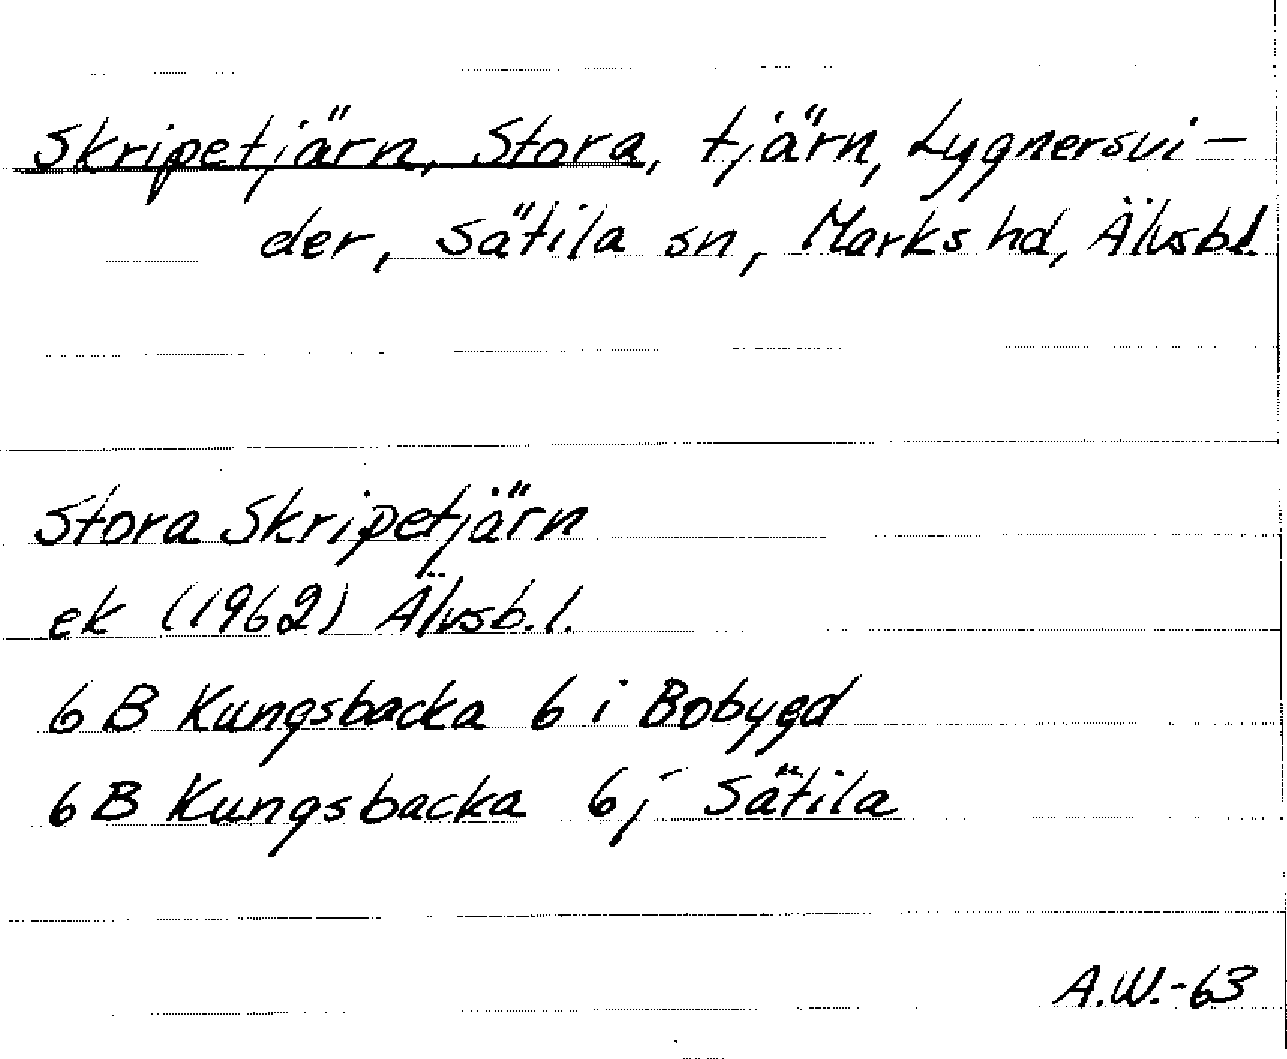 Skripetjärn, Stora, tjärn, Lygnersvi-
der, Sätila sn, Marks hd, Älvsbl.
Stora Skripetjärn
ek (1962) Älvsb.l.
6 B Kungsbacka 6 i Bobygd
6 B Kungsbacka 6j Sätila
A.W.-63